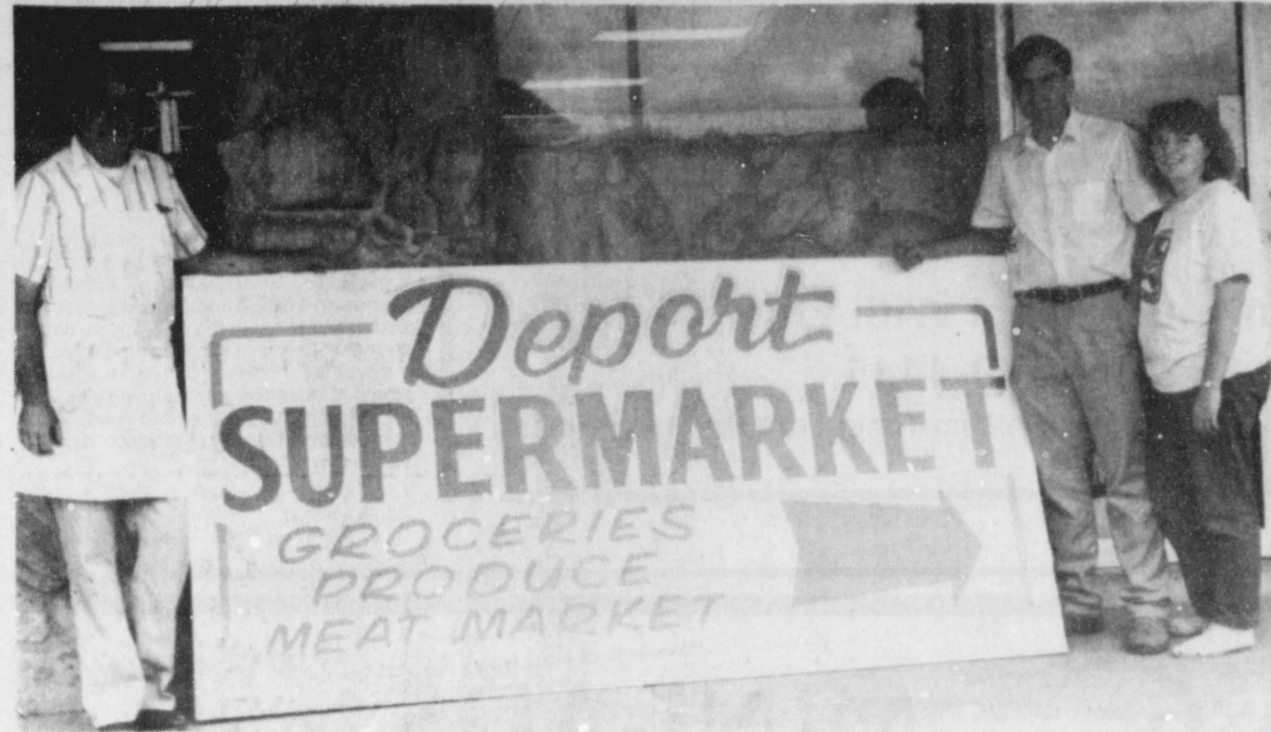 Deport
SUPERMARKET
GROCERIES
PRODUCE
MEAT MARKET